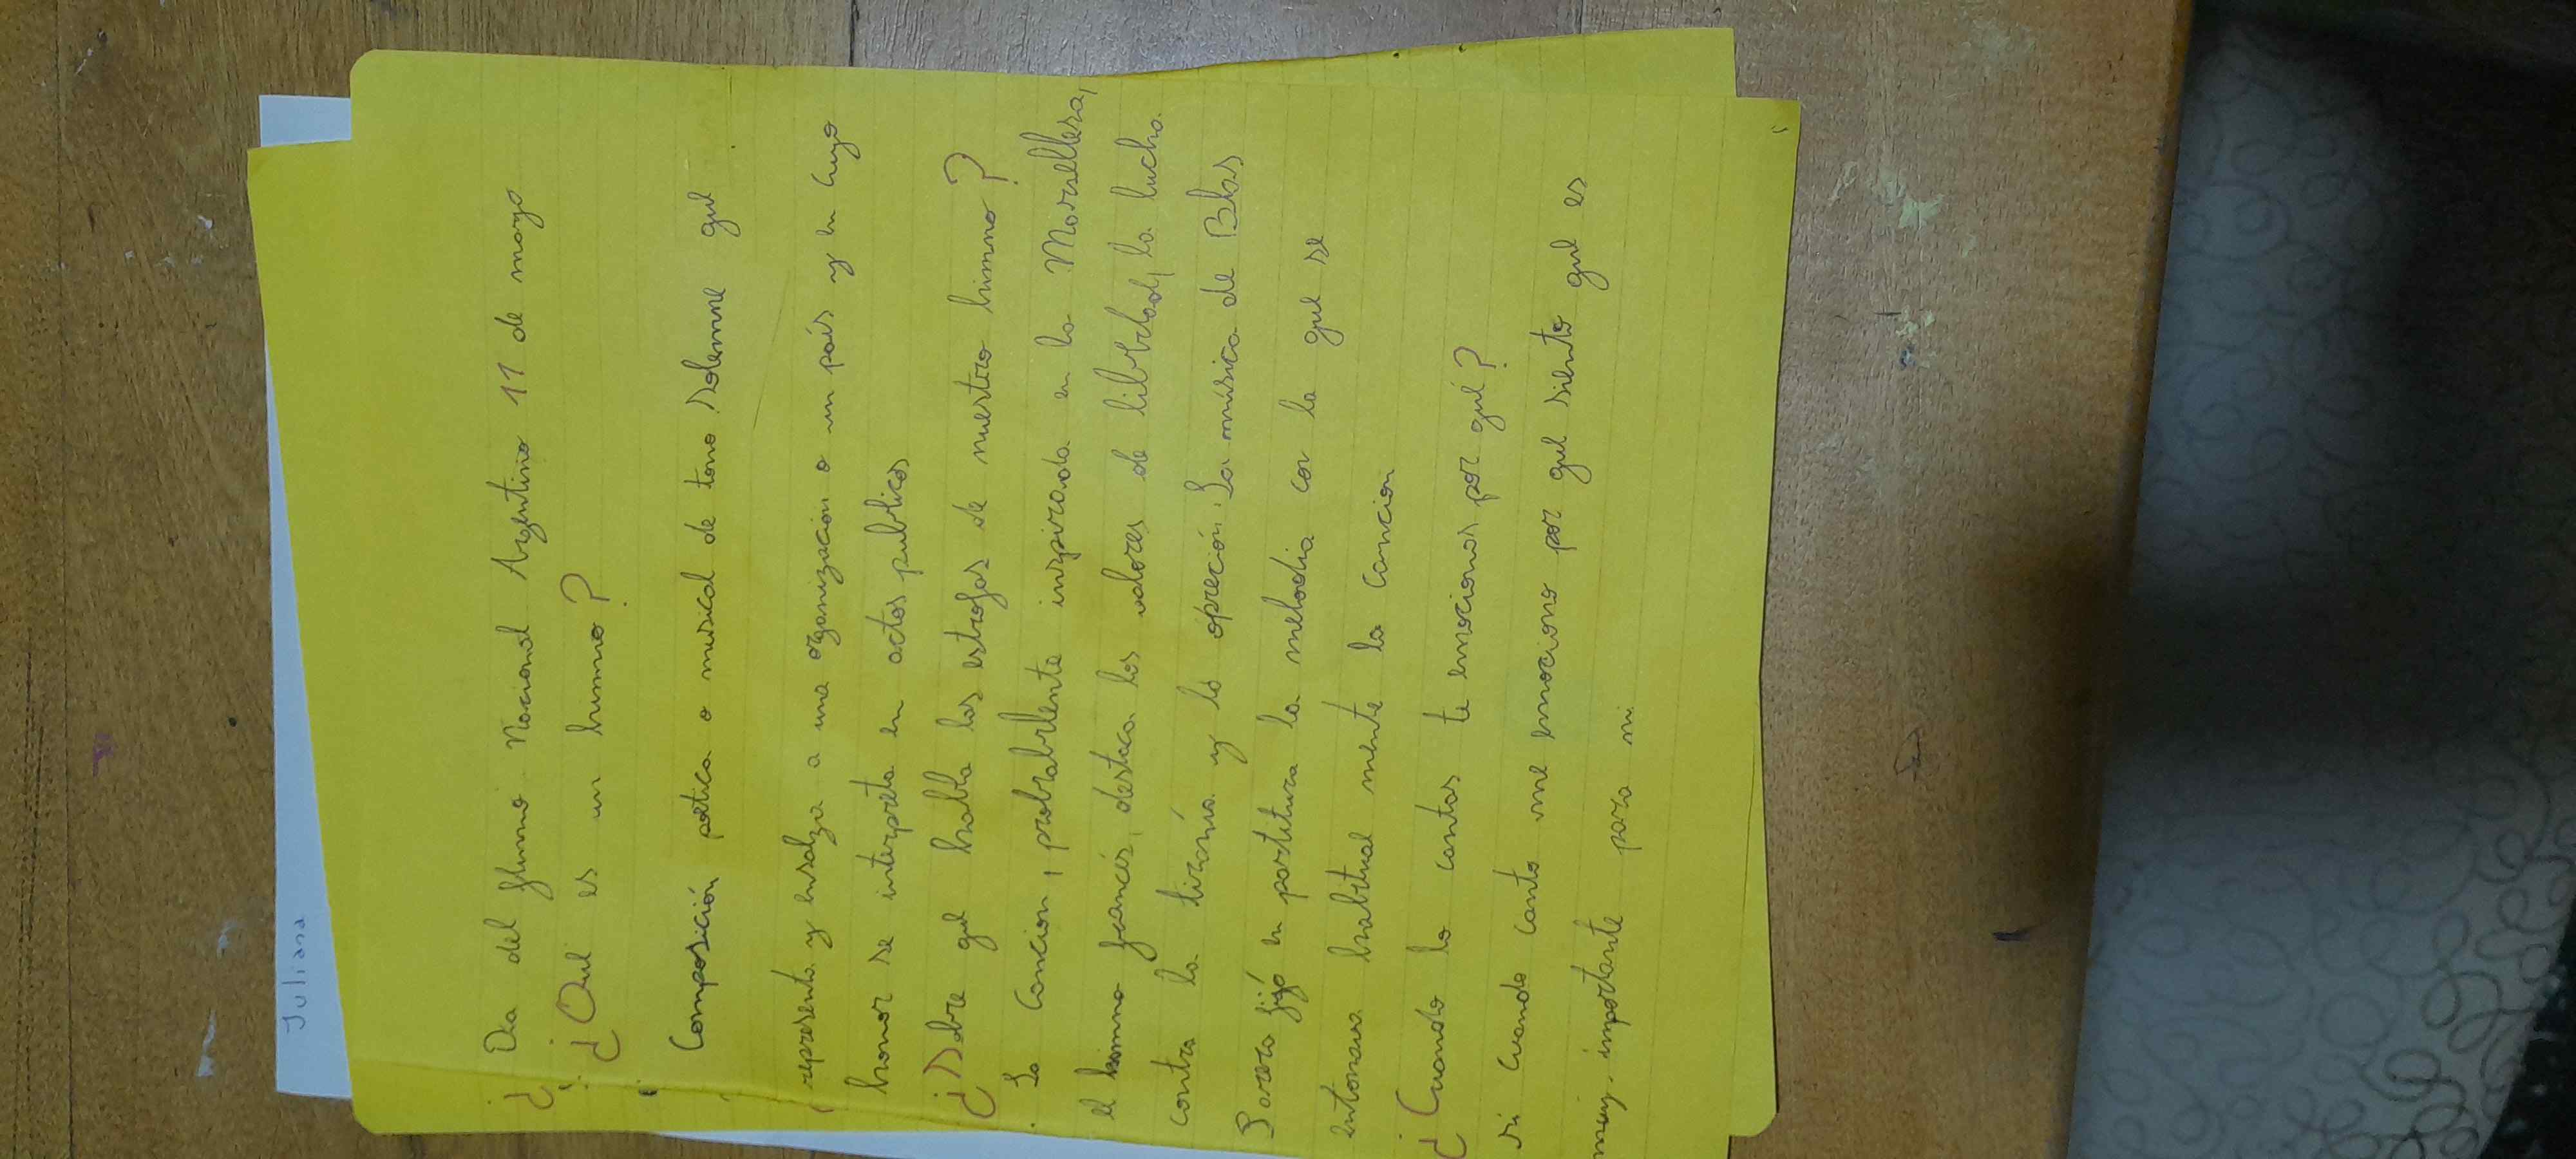 Juliana
Dia del Himno Nacional Argentino 11 de mayo
¿
¿Que es un himno?
Composición poetica o musical de tono solemne que
representa y ensalza a una organizacion o un país y en cuyo
honor se interpreta en actos publicos
¿Sobre que habla las estrofas de nuestro himno?
. La Cancion, probablemente inspirada en la Marsellesa,
el himno francés, destaca los valores de libertad, la lucha
contra la tiranía y la opreción. La música de Blas
Parera fijó en partitura la melodia con la que se
entonara habitual mente la cancion
¿Cuando lo cantas te emocionas por qué?
si cuando canto me emociono por que siento que es
muy importante para mi